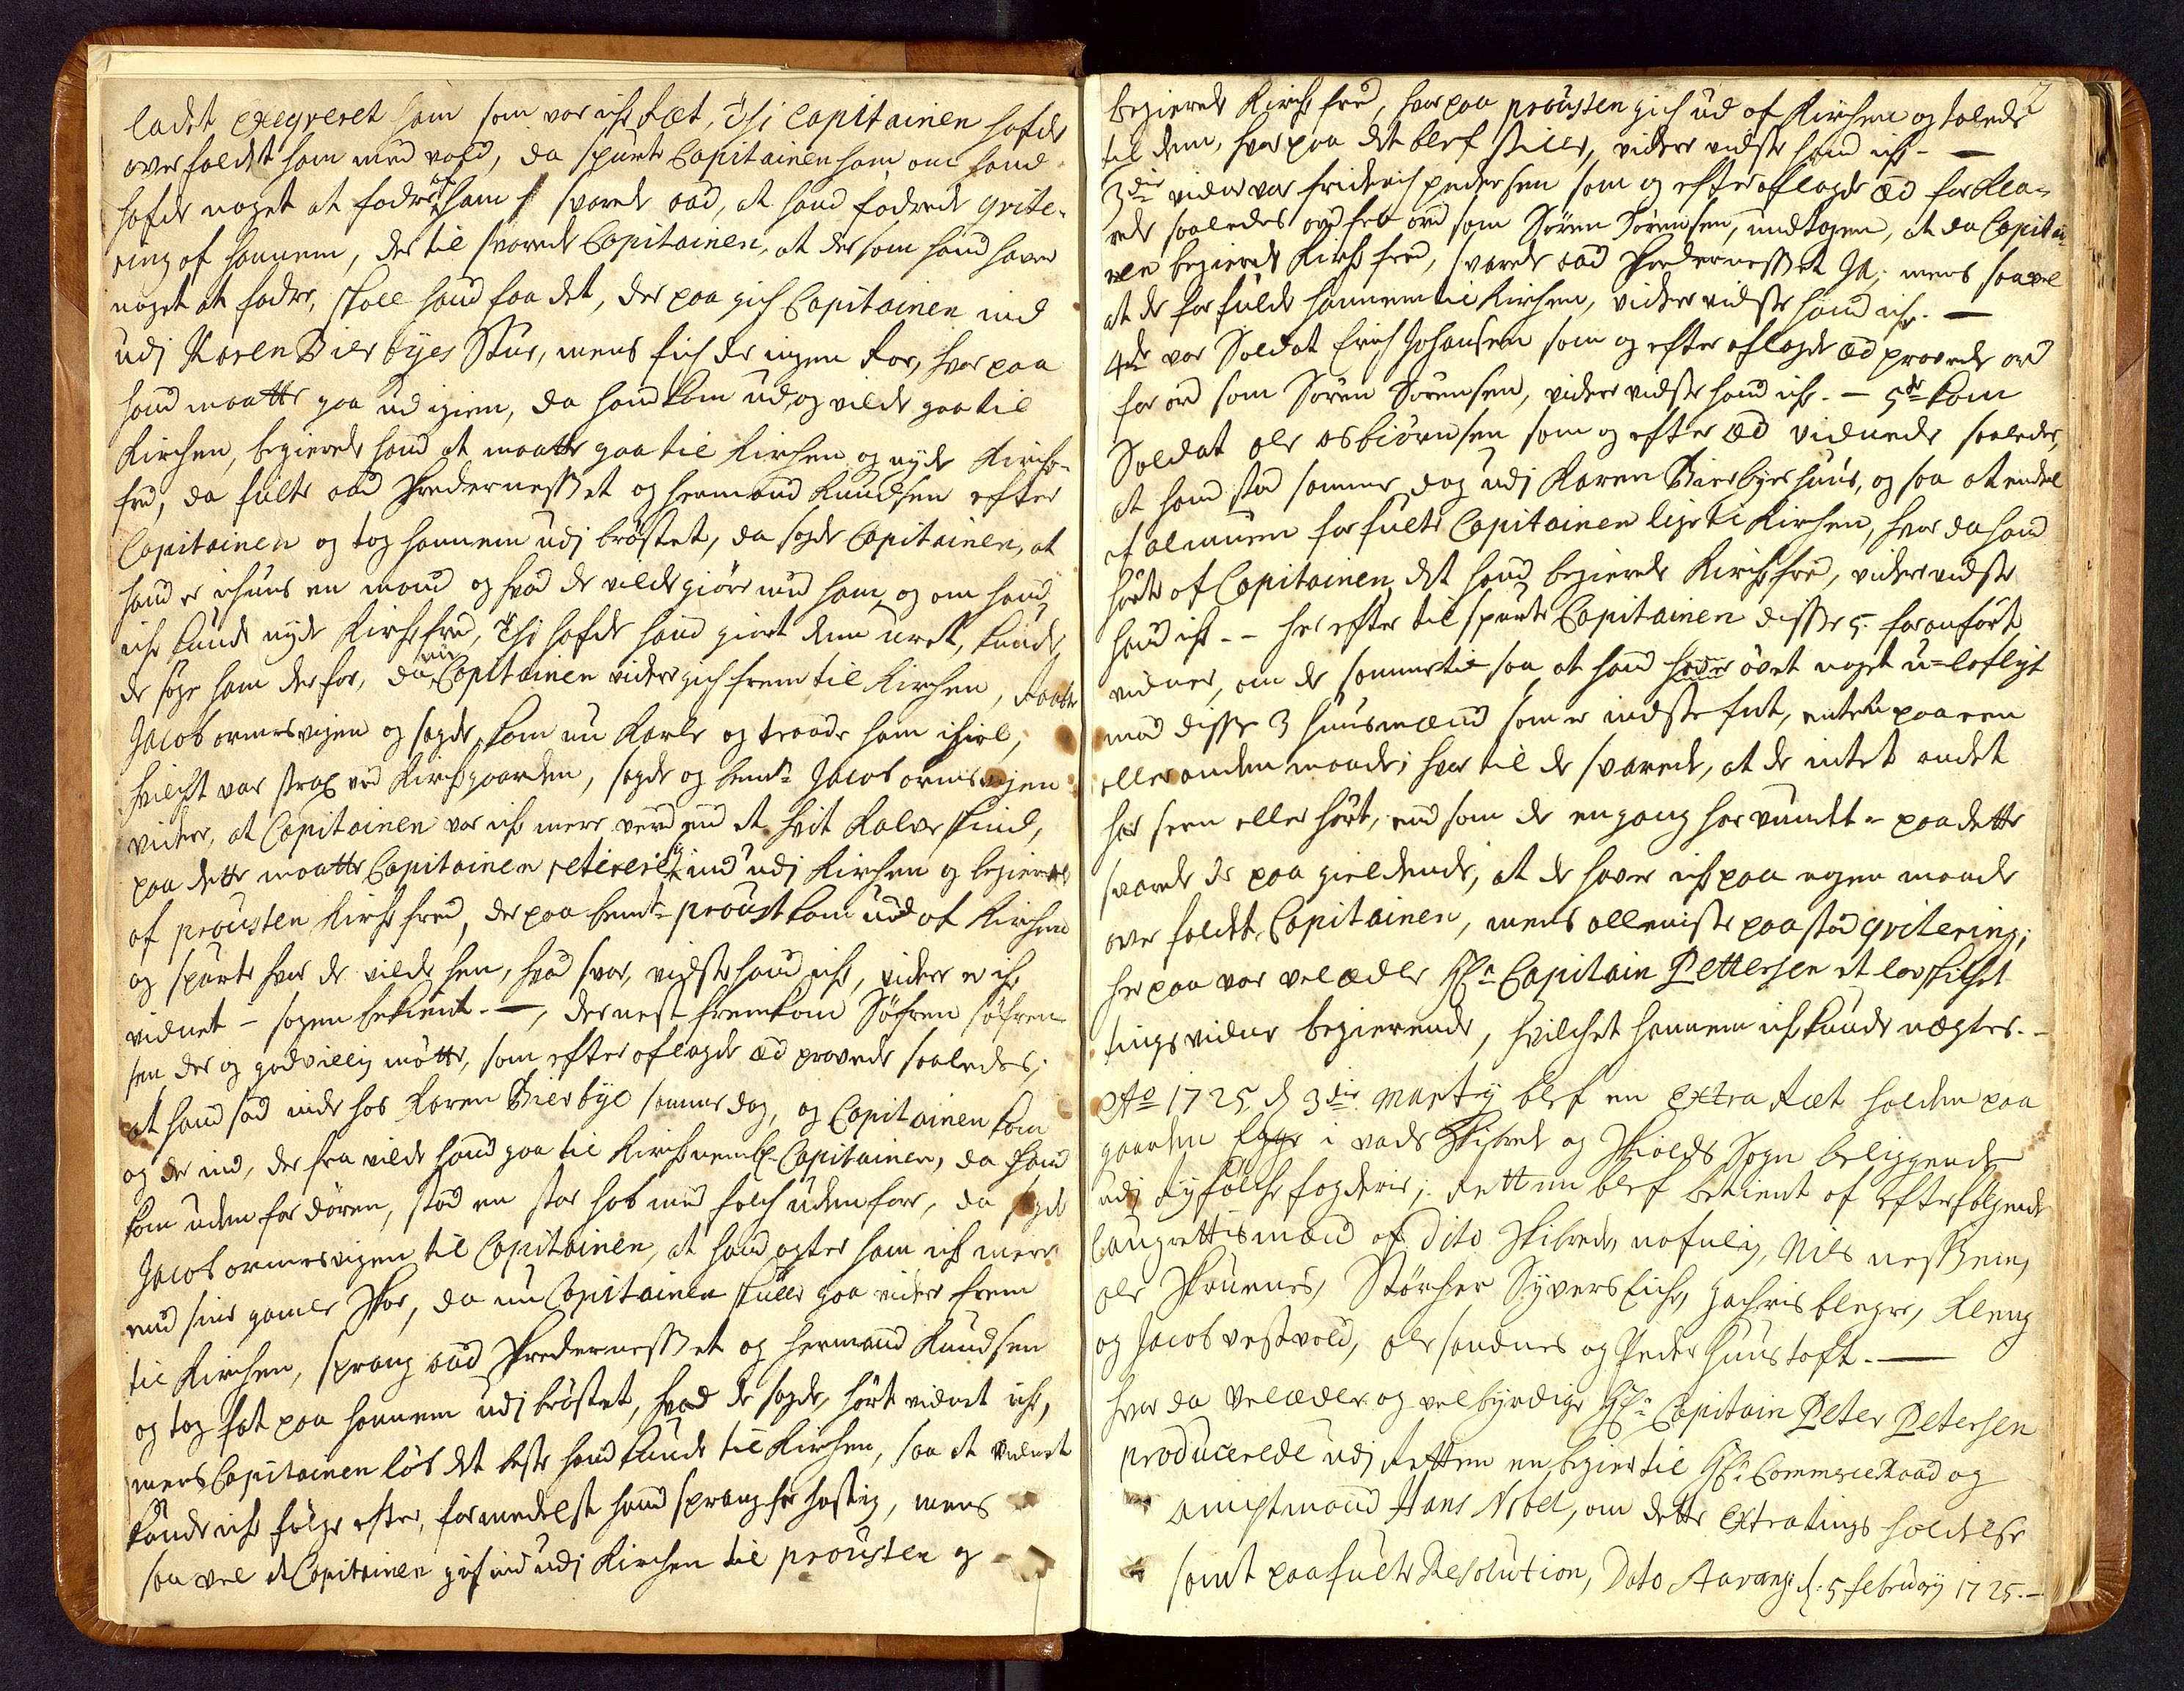 ladet exeqveret ham som var iche Ræt, Thi Capitainen hafde
ofverfaldet ham med vold, da spurte Capitainen ham om hand
hafde noget at fodre af ham, svarede Aad, at hand fodrede qvite-
ring af hannem, der til svarede Capitainen, at dersom hand haver
noget at fodre, skall hand faa det, der paa gich Capitainen ind
udj Karen Bierbÿes Stue, mens fich der ingen Roe, hvor paa
hand maatte gaa ud igien, da hand kom ud, og vilde gaa til
Kirchen, begierede hand at maatte gaa til Kirchen og nyde Kirche-
fred, da fulte Aad Hredernesset og Hermand Knudsen efter
Capitainen og tog hannem udj bröstet, da sagde Capitainen, at
hand er ichuns en mand og hvad de vilde giöre med ham, og om hand
iche kunde nyde Kirchefred, Thi hafde hand giort dem uret, kunde
de söge ham derfor, da nu Capitainen videre gich frem til Kirchen, Raabte
Jacob ormesvigen og sagde, kom nu Karle og traade ham ihiel,
hvilchet var strax ved Kirchegaarden, sagde og bemte Jacob ormesvigen
videre, at Capitainen var iche mere verd end et hvit Kalve skind,
paa dette maatte Capitainen retirere sig ind udj Kirchen og begierede
af prousten Kirchefred, der paa bemte proust kom ud af Kirchen
og spurte hvor de vilde hen, hvad svar, vidste hand iche, videre er iche
vidnet - sagen bekient. —, dernest fremkom Söfren Söfren-
sen der og godvillig mötte, som efter aflagde æd provede saaledes;
at hand sad inde hos Karen Bierbÿe samme dag, og Capitainen kom
og der ind, der fra vilde hand gaa til Kirche nembl. Capitainen, da hand
kom uden for dören, stod en stor hob med folch udenfore, da sagde
Jacob ormesvigen til Capitainen, at hand agter ham iche mere
end sine gamle Skoe, da nu Capitainen skulle gaa videre frem
til Kirchen, sprang Aad Hredernesset og Hermand Knudsen
og tog fat paa hannem udj bröstet, hvad de sagde, hört vidnet iche,
mens Capitainen löb det beste hand kunde til Kirchen, saa at vidnet
kunde iche fölge efter, formedelst hand sprang for hastig, mens
saa vel at Capitainen gich ind udj Kirchen til prousten og
2
begierede Kirche fred, hvorpaa prousten gich ud af Kirchen og talede
til dem, hvorpaa det blef stille, videre vidste hand iche. —
3die vidne var Friderich Pedersen som og efter aflagde æd forkla-
rede saaledes ord for ord som Sören Sörensen, undtagen, at da Capitai-
nen begierede Kirche fred, svarede Aad Hredernesset Ja; mens saavel
at de forfulde hannem til Kirchen, videre vidste hand iche. —
4de var Soldat Erich Johansen som og efter aflagde æd provede ord
for ord som Sören Sörensen, videre vidste hand iche. — 5te kom
Soldat Ole Asbiörnsen som og efter æd vidnede saaledes,
at hand stod samme dag udj Karen Bierbyes huus, og saa at endel
af almuen forfulte Capitainen lige til Kirchen, hvor da hand
hörte af Capitainen, det hand begierede Kirchefred, videre vidste
hand iche. - - her efter tilspurte Capitainen disse 5. foranförte
vidner, om de sammetid saa at hand hafver övet noget u-lofligt
mod disse 3 huusmænd som er indstefnt, enten paa een
eller anden maade; hvor til de svarede, at de intet andet
har seen eller hört, end som de engang har vundet - paa dette
svarede de paagieldende, at de haver iche paa nogen maade
overfaldet Capitainen, mens alleniste paastod qvitering;
herpaa var velædle Hr. Capitain Pettersen et lovskichet
tingsvidne begierende, hvilchet hannem iche kunde nægtes. -
Ao 1725 d 3die Martÿ blef en extra Ræt holden paa
gaarden Egge i vads Skibrede og Skiolds Sogn beliggende
udj Ryfölche fogderie; Retten blef betient af efterfölgende
laugrettismænd af dito Skibrede, nafnlig, Nils nesseim,
Ole Skrunes, Störcher Syversliche, Zachris blegre, Kleng
og Jacob vestvold, Ole sandnes og Peder Huustoft. —
hvor da velædle og velbyrdige Hr. Capitain Peter Petersen
producerede udj Retten en begier til Hr. CommerceRaad og
Amptmand Hans Nobel, om dette extratings holdelse
samt paafulte Resolution, Dato Stavang. d. 5 februarÿ 1725. -